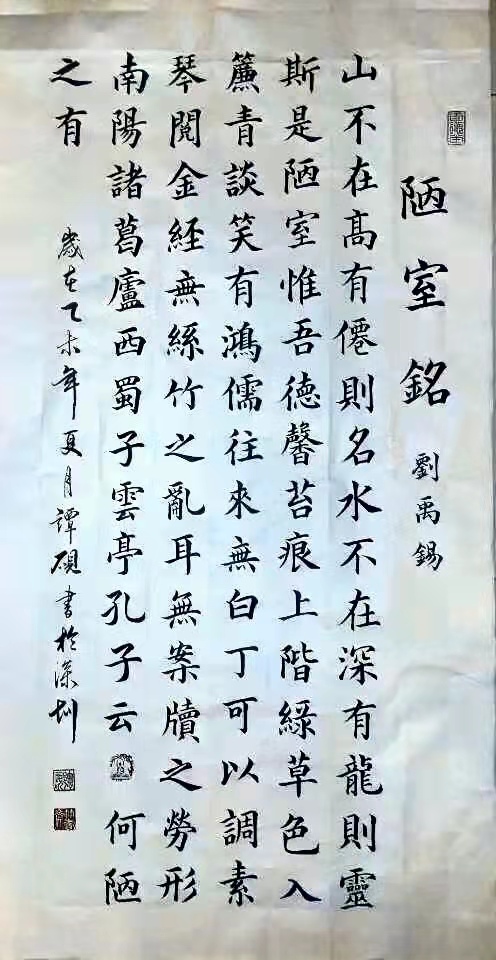 陋室銘 劉禹錫
山不在髙有僊則名水不在深有龍則靈
斯是陋室惟吾徳馨苔痕上階綠草色入
簾青談笑有鴻儒往來無白丁可以調素
琴閱金経無絲竹之亂耳無案牘之勞形
南陽諸葛廬西蜀子雲亭孔子云 何陋
之有 歲在乙未年夏月譚碩書於深圳